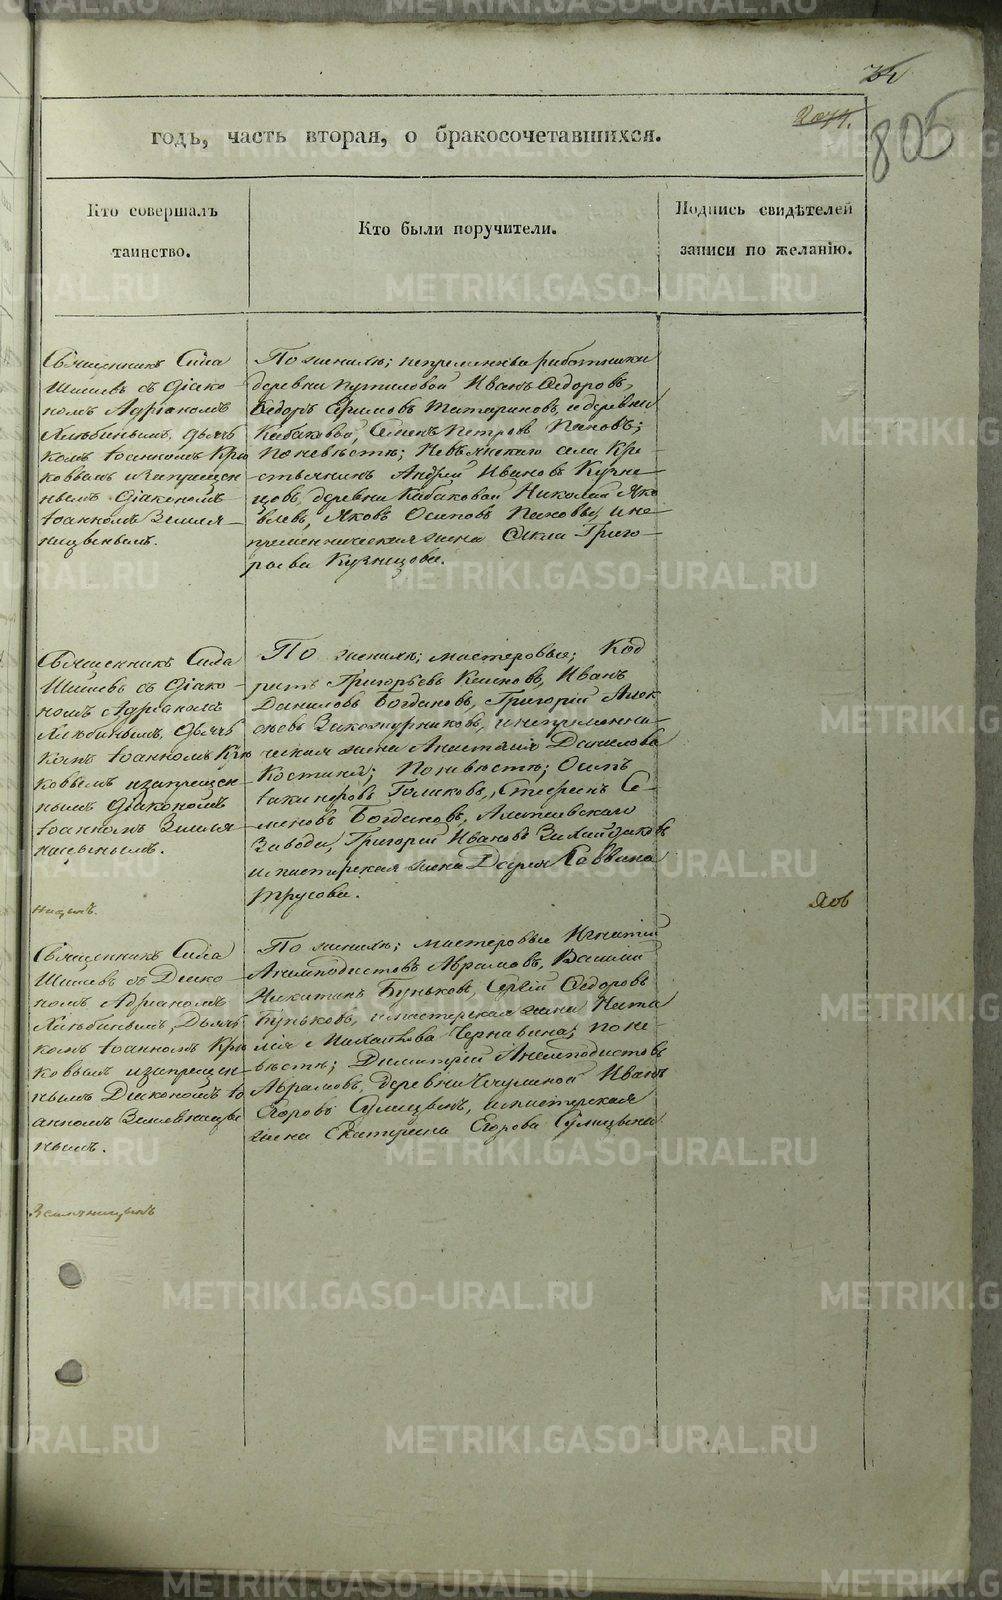 2044.
805
годъ, часть вторая, о бракосочетавшихся.
Кто совершалъ
таинство.
Кто были поручители.
Подпись свидѣтелей
записи по желанію.
Священникъ Сила
Шишевъ съ діако-
номъ Адріаномъ
Хлюбинымъ, дьяч-
комъ Іоанномъ Крю
ковымъ и запрещен
нымъ діакономъ
Іоанномъ Земля-
ницынымъ.
По женихѣ; непремѣнные работники
деревни Путиловой Иванъ Ѳедоровъ,
Ѳедоръ Ефимовъ Татариновъ, и деревни
Кабаковой, Семенъ Петровъ Пановъ;
По невѣстѣ; Невьянскаго села кре-
стьянинъ Андрей Ивановъ Кузне-
цовъ, деревни Кабаковой Николай Яко
влевъ, Яковъ Осиповъ Пановы, и не-
премѣнническая жена Ѳекла Григо-
рьева Кузнецова.
Священникъ Сила
Шишевъ съ діако-
номъ Адріаномъ
Хлюбинымъ, дьяч
комъ Іоанномъ Крю
ковымъ и запрещен-
нымъ діакономъ
Іоанномъ Земля-
ницынымъ.
По женихѣ; мастеровые; Код
ратъ Григорьевъ Ивановъ
Даниловъ Богдановъ, Григорій Алек
сѣевъ Закожурниковъ, и непремѣнни-
ческая жена Анастасія Данилова
Костина; По невѣстѣ; Осипъ
Голиковъ, Стефанъ Се-
меновъ Богдановъ, Алапаевскаго
Завода, Григорій Ивановъ
и мастерская жена Дарья Саввина
Трусова.
ницынъ.
Священникъ Сила
Шишевъ съ Діако-
номъ Адріаномъ
Хлюбинымъ, Дьяч
комъ Іоанномъ Крю
ковымъ и запрещен-
нымъ Діакономъ Іо
анномъ Земляницы
нымъ.
По женихѣ; мастеровые Игнатій
Анемподистовъ Абрамовъ, Василій
Никитинъ Буньковъ, Сергій Ѳедоровъ
Буньковъ, и мастерская жена Ната
лія Михайлова Чернавина; по не-
вѣстѣ; Димитрій Анемподистовъ
Абрамовъ, деревни Ячменой Иванъ
Егоровъ Сулицынъ, и мастерская
жена Екатерина Егорова Сулицына
Земляницынъ
METRIKI.GASO-URAL.RU